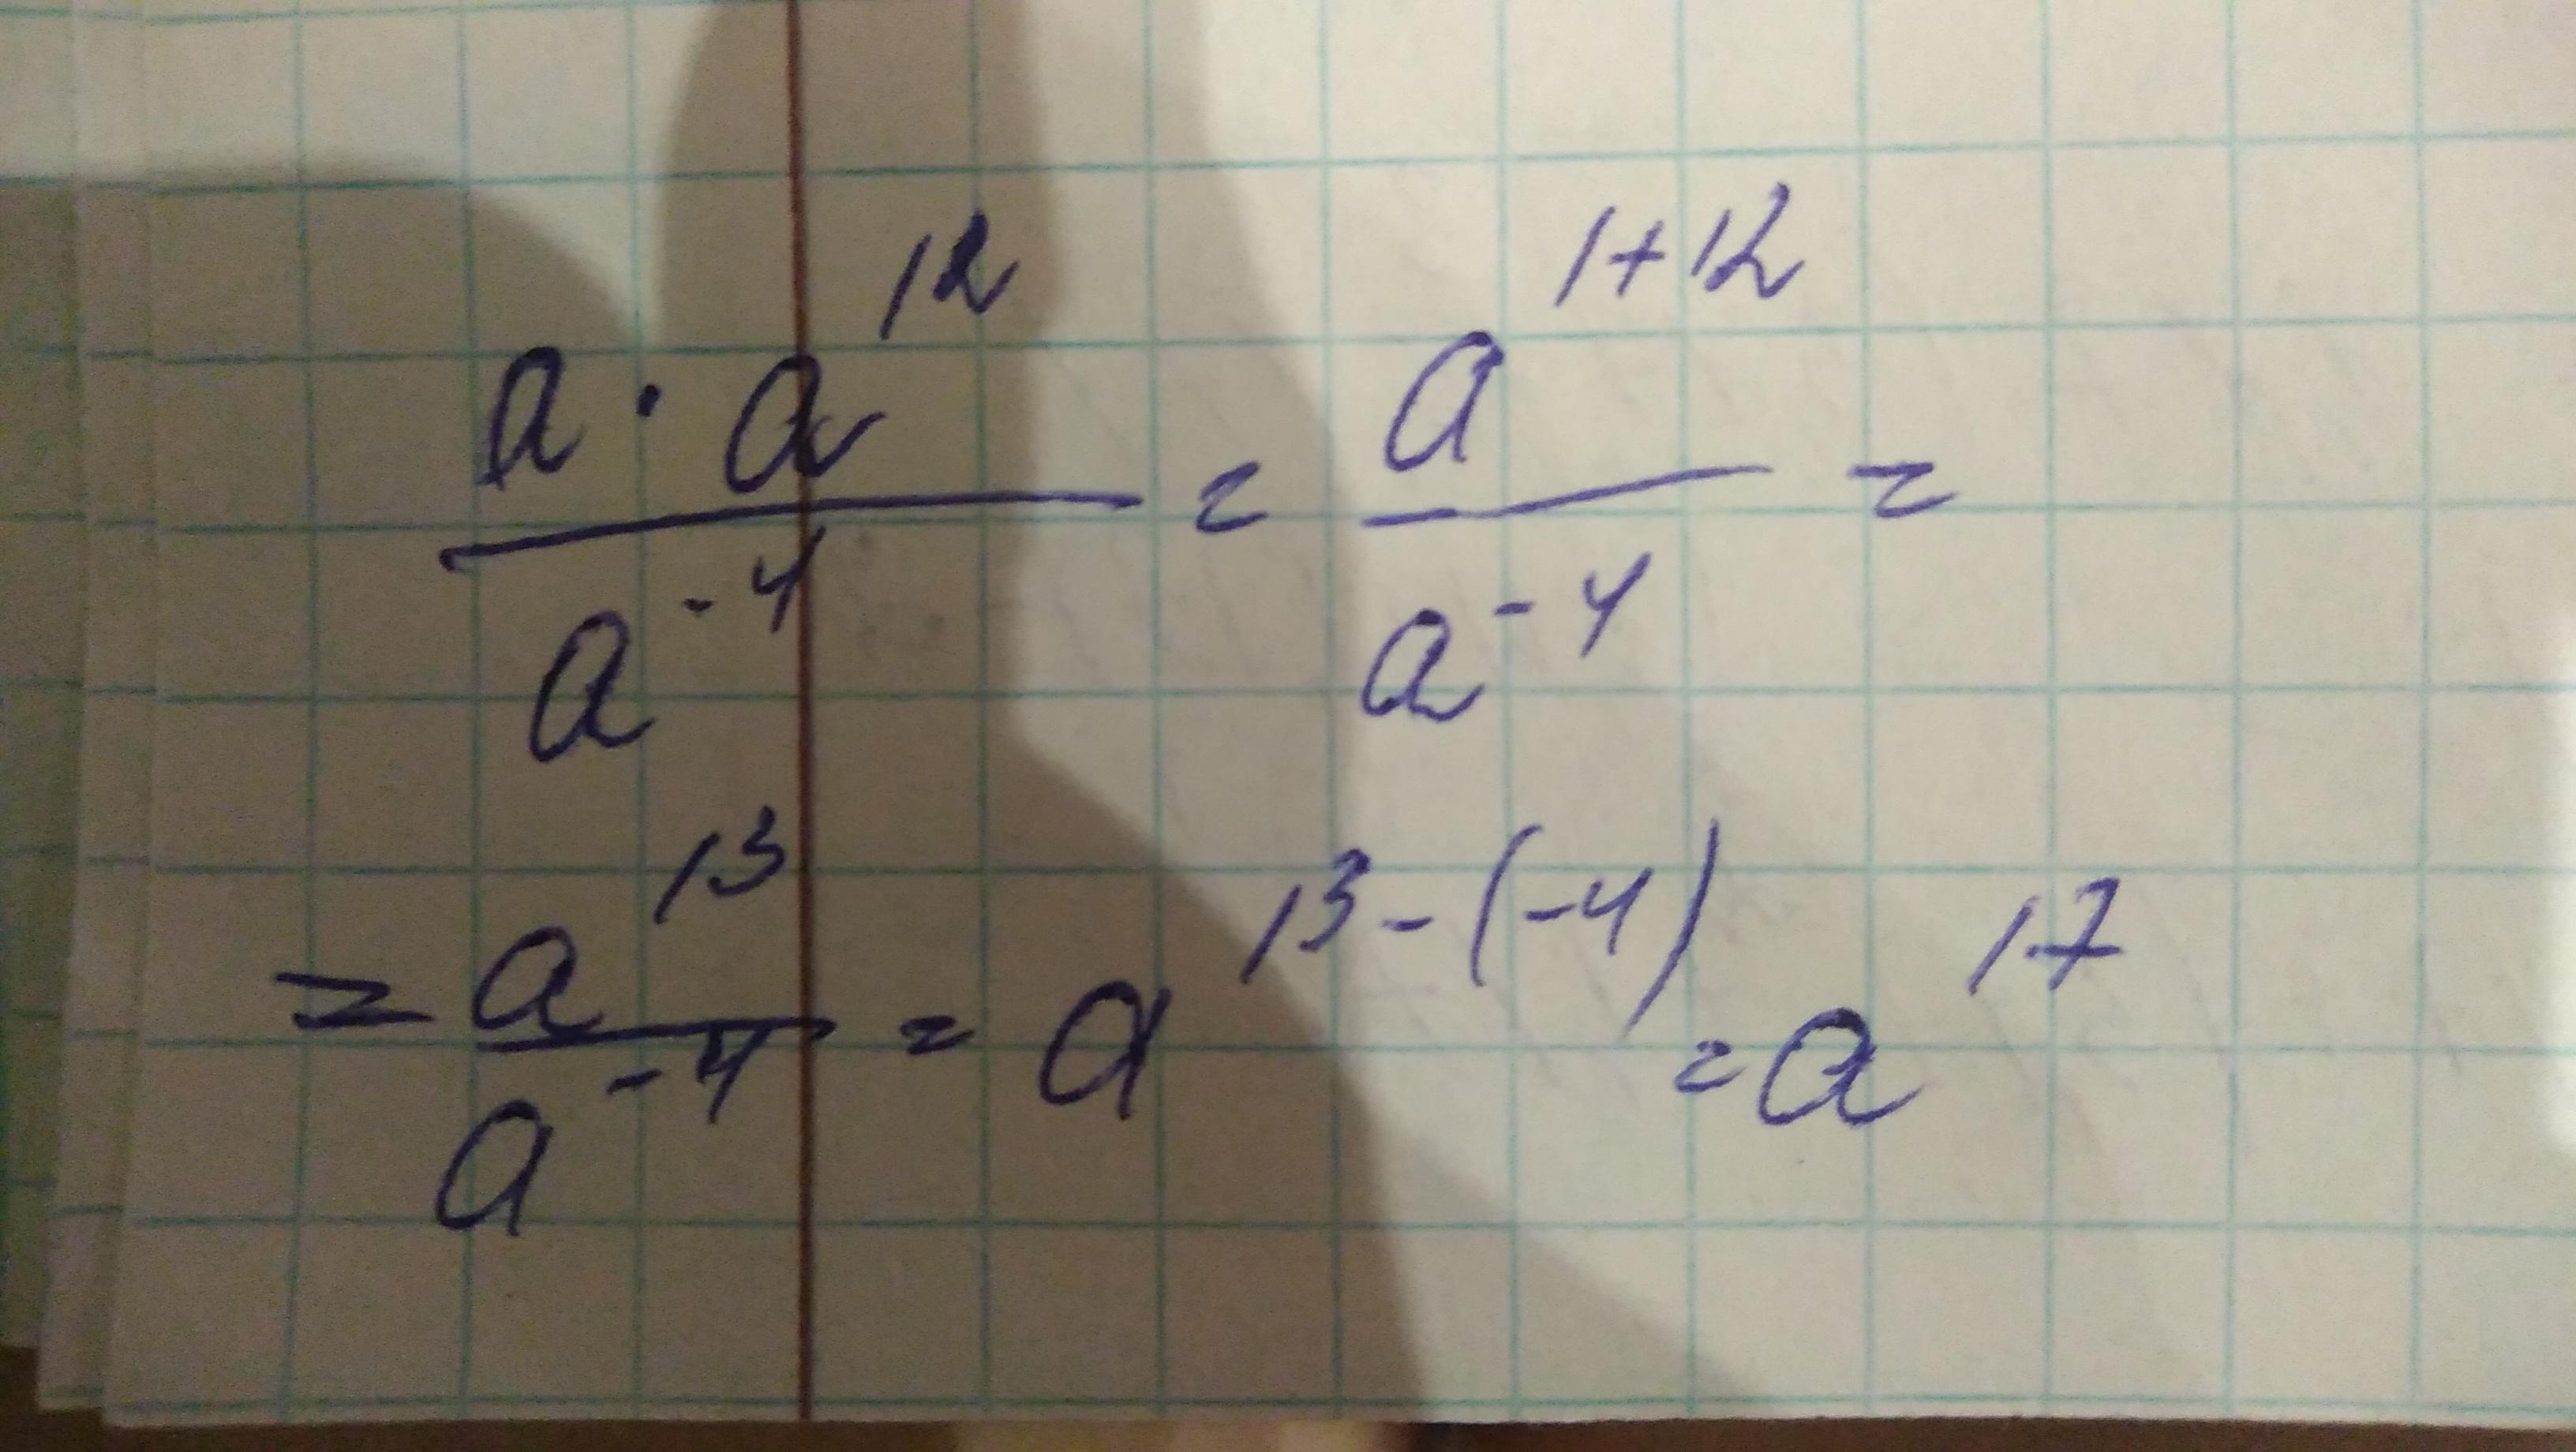 a · a^12 / a^-4 = a^1+12 / a^-4 =
= a^13 / a^-4 = a^13-(-4) = a^17